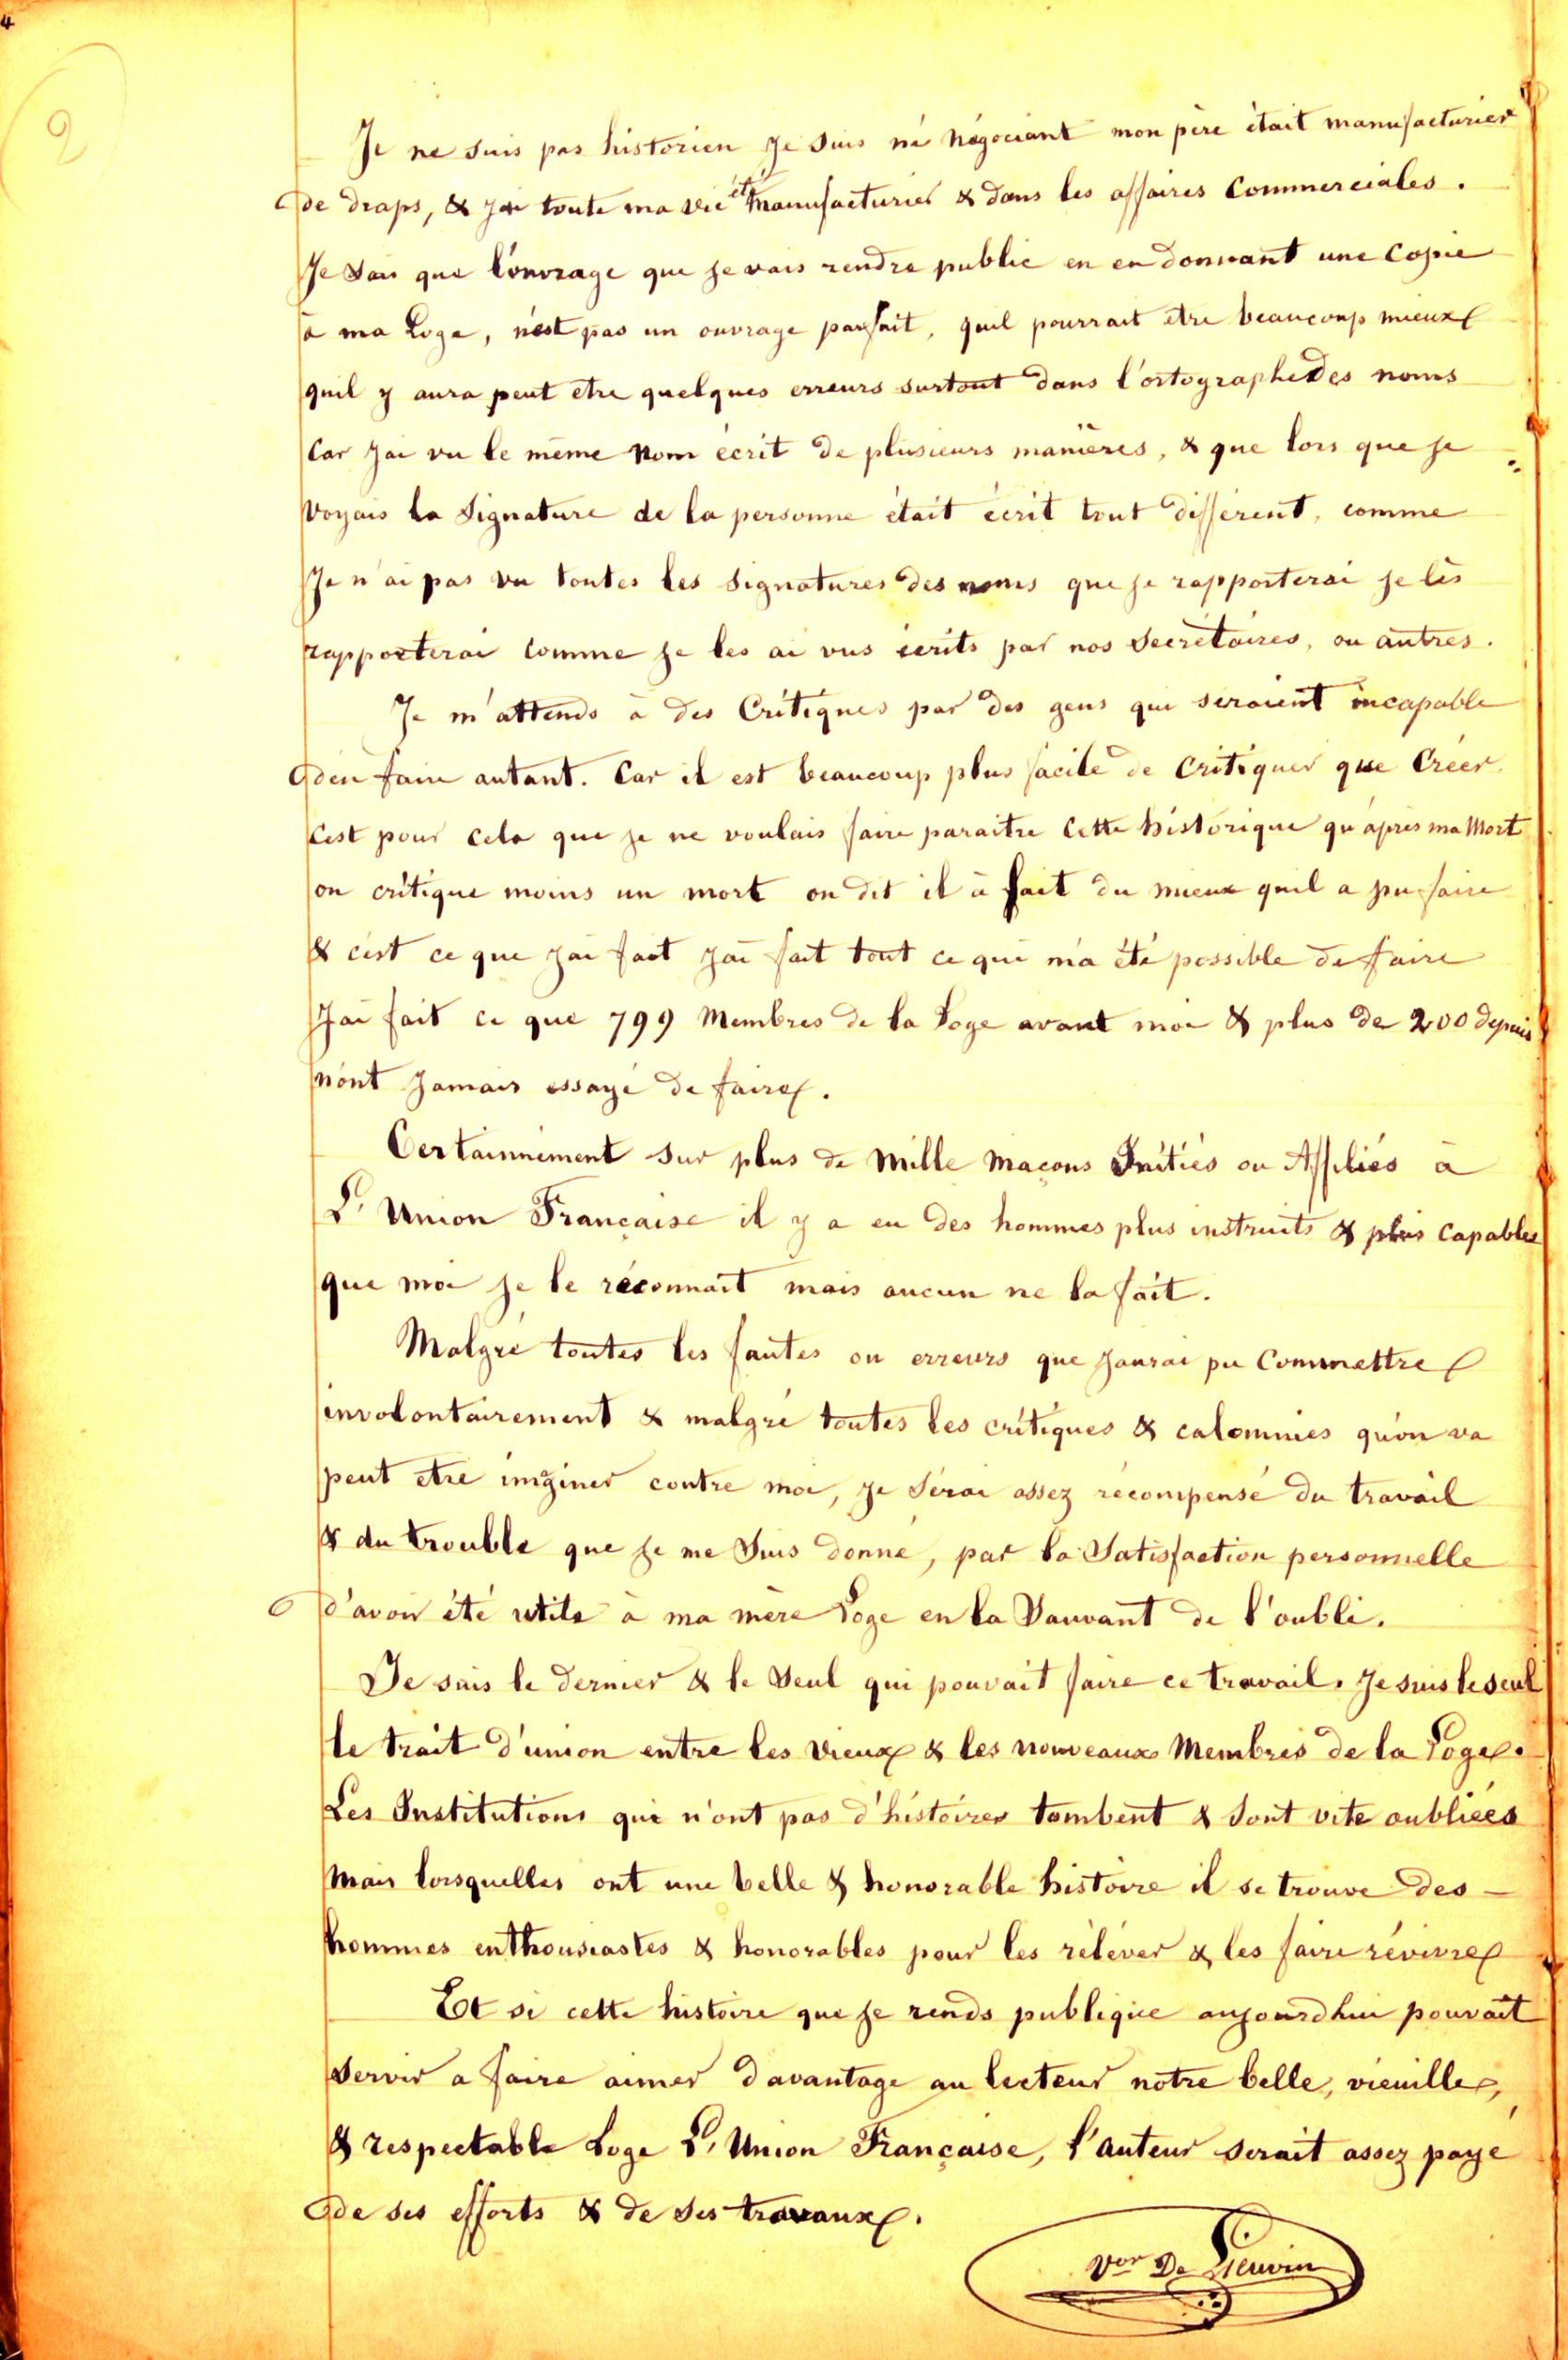 4
2
Je ne suis pas historien je suis né négociant mon père était manufacturier
de draps, & jai toute ma vie été manufacturier & dans les affaires Commerciales.
Je sais que l'ouvrage que je vais rendre public en en donnant une Copie
à ma Loge, n'est pas un ouvrage parfait, quil pourrait etre beaucoup mieux
quil y aura peut etre quelques erreurs surtout dans l'ortographe des noms
Car jai vu le même nom écrit de plusieurs manières, & que lors que je
voyais la Signature de la personne était écrit tout différent, comme
Je n'ai pas vu toutes les Signatures des noms que je rapporterai je lès
rapporterai comme je les ai vus écrits par nos Secrétaires, ou autres.
Je m'attends à des Critiques par des gens qui seraient incapable
d'en faire autant. Car il est beaucoup plus facile de Critiquer que Créer.
Cest pour cela que je ne voulais faire paraitre Cette historique qu'après ma Mort
on critique moins un mort on dit il à fait du mieux quil a pu faire
& c'est ce que jai fait jai fait tout ce qui m'a été possible de faire
Jai fait ce que 799 Membres de la Loge avant moi & plus de 200 depuis
n'ont jamais essayé de faire.
Certainnement sur plus de Mille Maçons Initiés ou Affiliés à
L'Union Française il y a eu des hommes plus instruits & plus Capables
que moi je le réconnait mais aucun ne la fait.
Malgré toutes les fautes ou erreurs que jaurai pu Commettre
involontairement & malgré toutes les critiques & calomnies qu'on va
peut etre imaginer contre moi, je sérai assez récompensé du travail
& du trouble que je me suis donné, par la Satisfaction personnelle
d'avoir été utile à ma mère Loge en la Sauvant de l'oubli.
Je suis le dernier & le Seul qui pouvait faire ce travail. Je suis le seul
le trait d'union entre les vieux & les nouveaux Membres de la Loge.
Les Institutions qui n'ont pas d'histoires tombent & sont vite oubliées
Mais lorsquelles ont une belle & honorable histoire il se trouve des
hommes enthousiastes & honorables pour les réléver & les faire révivre
Et si cette histoire que je rends publique aujourdhui pouvait
servir a faire aimer davantage au lecteur notre belle, vieuille,
& respectable Loge L'Union Française, l'Auteur serait assez payé
de ses efforts & de ses travaux.
Vor De